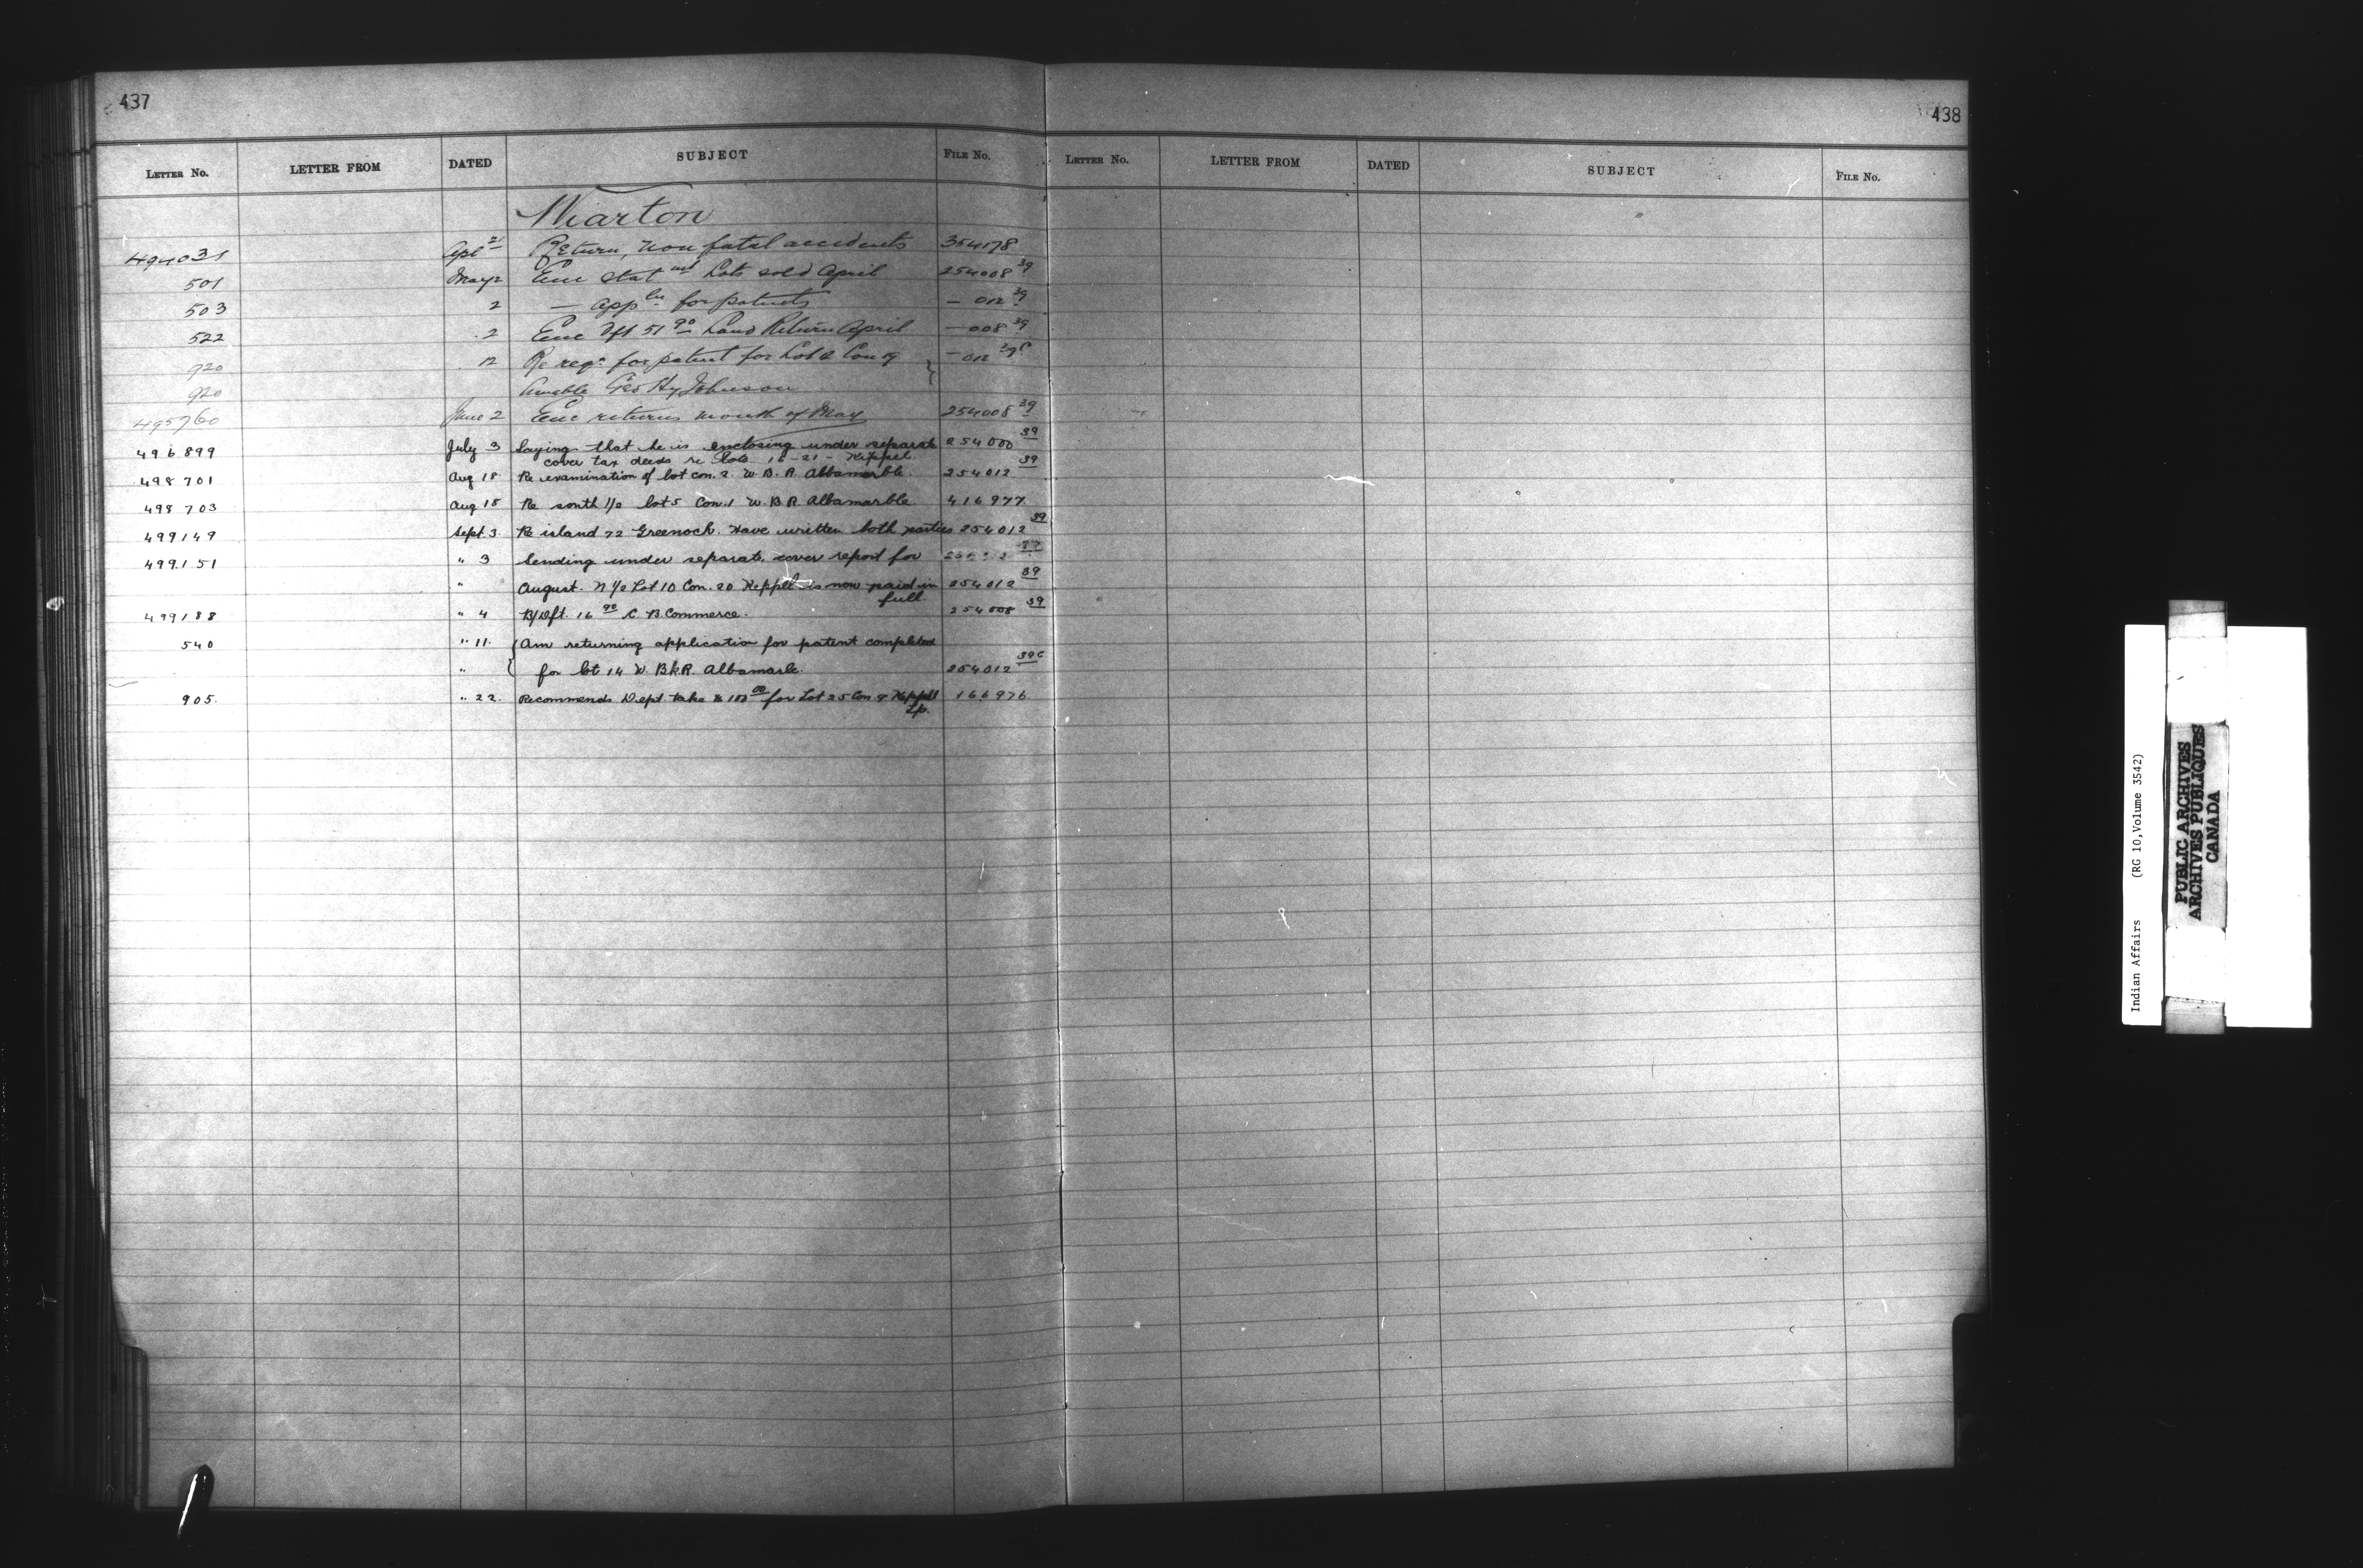 437
LETTER No. LETTER FROM DATED SUBJECT FILE No.
Wiarton
494031 Apl 21 Return, non fatal accidents 354178
501 May 2 Enc stat mt Lots sold April 254008 39
503 2 — app lns for patents — 012 39
522 2 Enc Dft 51 90 Land Return April — 008 39
920 12 Re reqn for patent for Lot Con 9 — 012 39c
920 Amable Geo Hy Johnson
495760 June 2 Enc returns month of May 254008 39
496899 July 3 Saying that he is enclosing under separate 254000 39
cover tax deeds re lots 16-21- Keppel.
498701 Aug 18 Re examination of lot con. 2. W. B. R. Albamarble. 254012 39
498703 Aug 18 Re south 1/2 lot 5 Con. 1 W. B. R. Albamarble. 416977
499149 Sept. 3. Re island 72 Greenoch. Have written both parties 254012 39
499151 " 3 Sending under separate cover report for
" August. N 1/2 Lot 10 Con. 20 Keppel is now paid in 254012 39
full
499188 " 4 B/Dft. 16 90 C. B. Commerce. 254008 39
540 " 11. { Am returning application for patent completed
" { for lot 14 W. Bk.R. Albamarle. 254012 39c
905. " 22. Recommends Dept take $ 100 00 for Lot 25 Con 9 Keppel 166976
Tp.
438
LETTER No. LETTER FROM DATED SUBJECT FILE No.
Indian Affairs (RG 10, Volume 3542)
PUBLIC ARCHIVES
ARCHIVES PUBLIQUES
CANADA